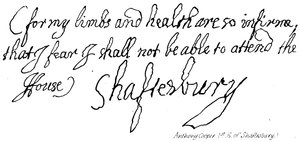 (for my limbs and health are so infirme,
that I fear I shall not be able to attend the
House)
Shaftesbury
Anthony Cooper 1st E. of Shaftesbury